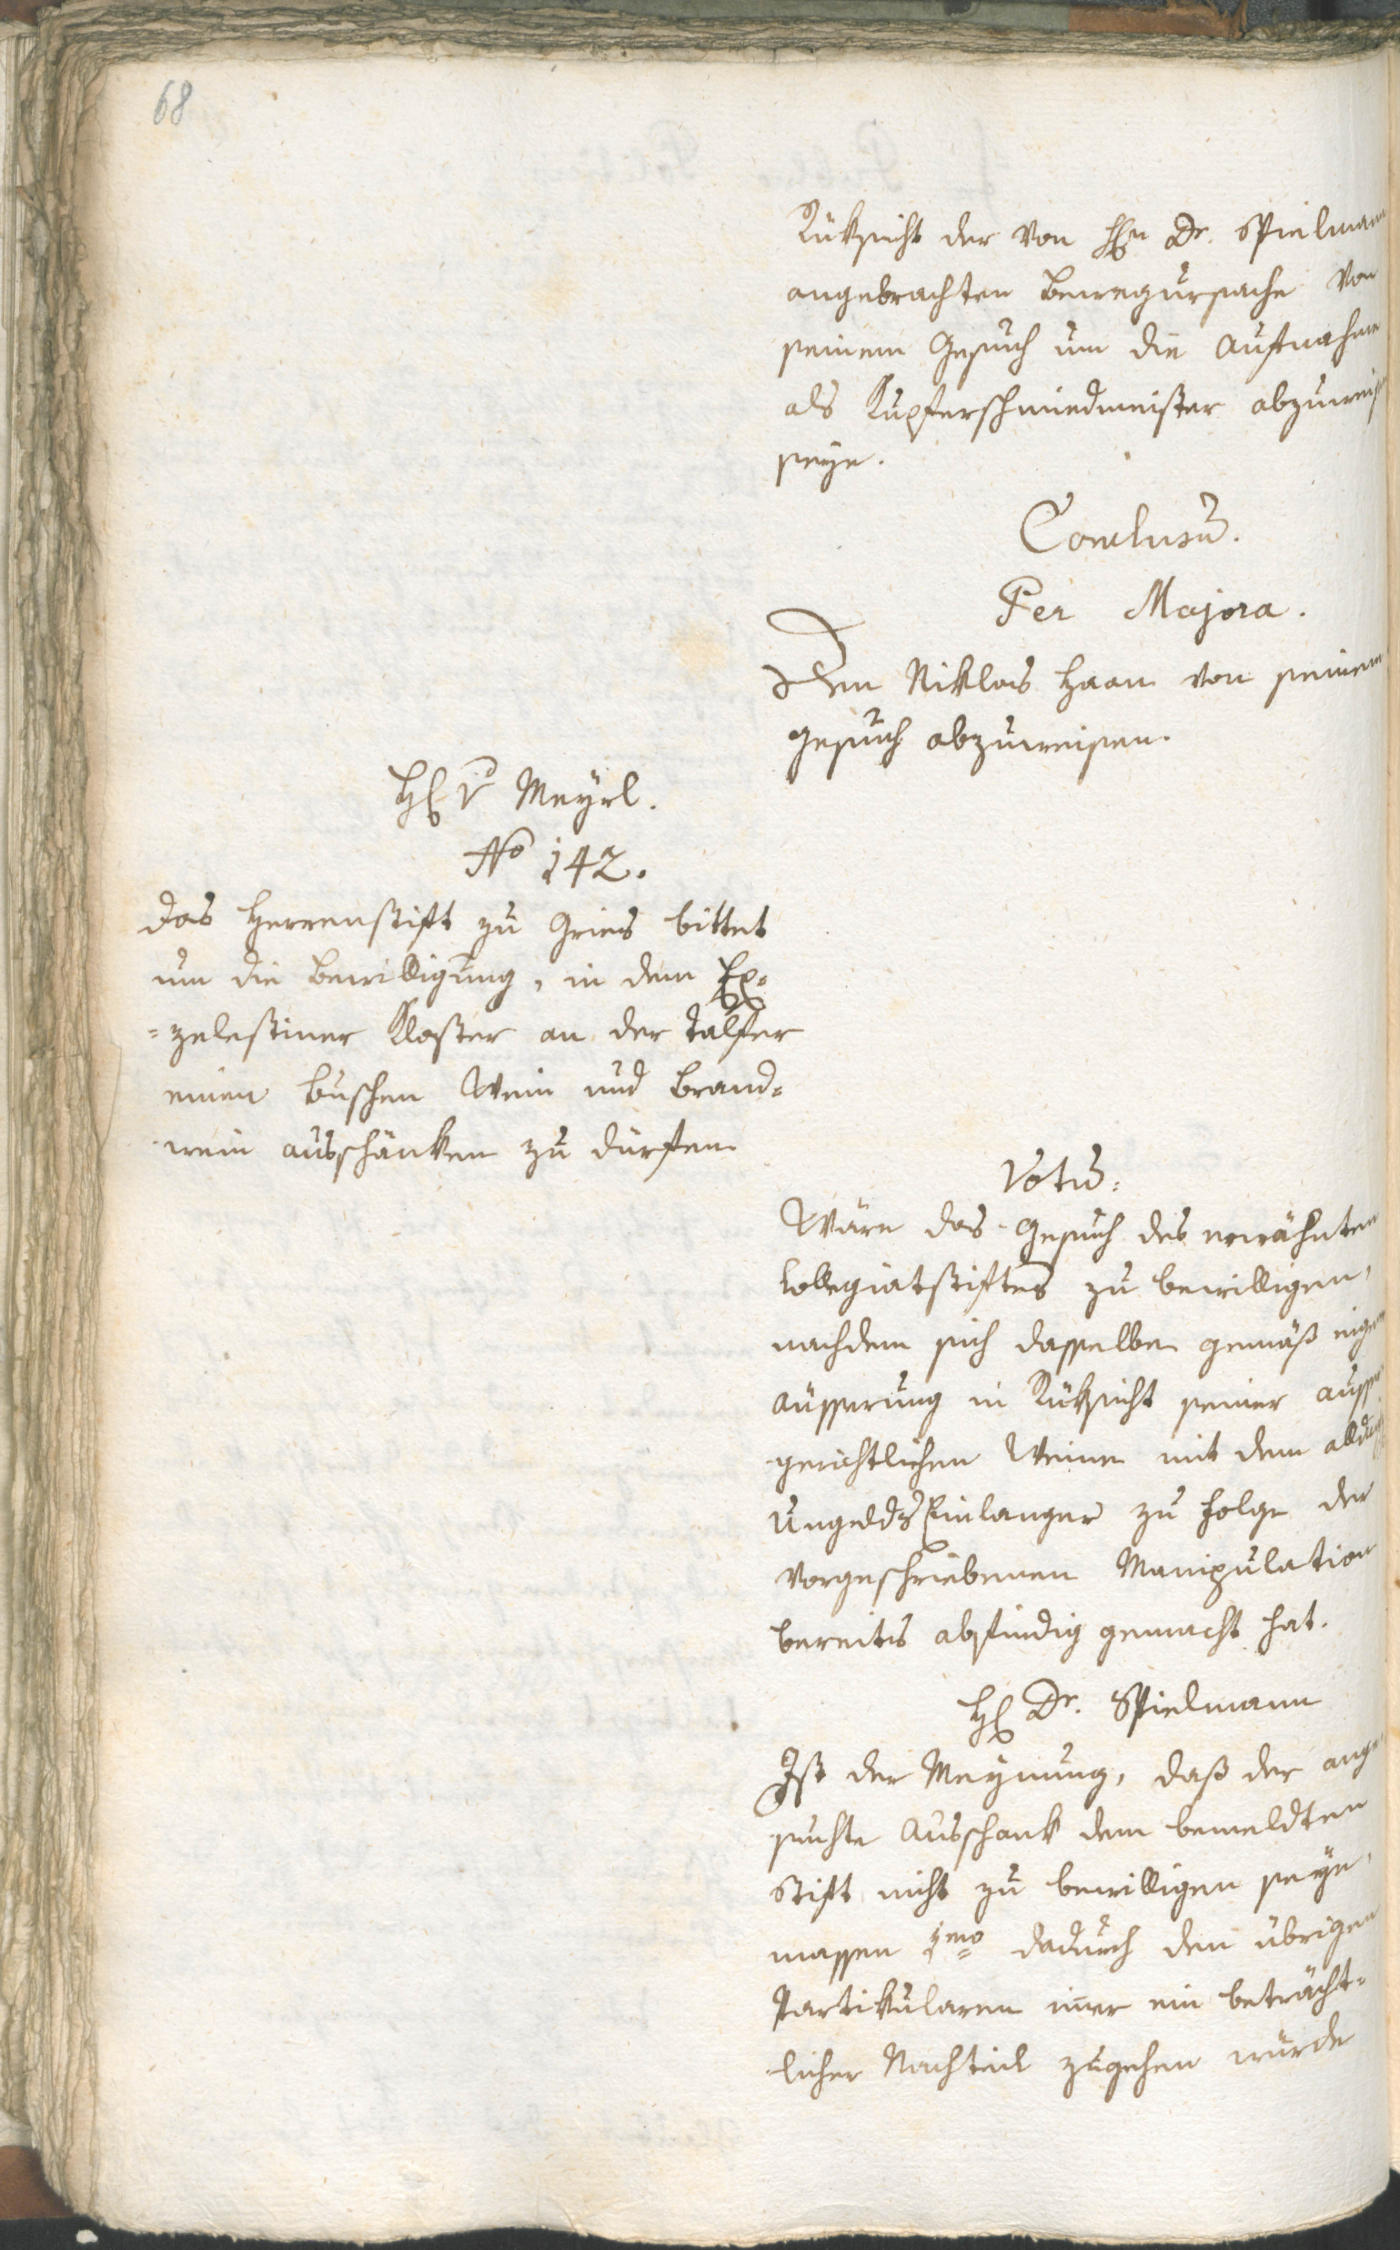 68
Rüksicht der von H[er]rn Dr. Spielmann
angebrachten Bewegursache von
seinem Gesuch um die Aufnahme
als Kupferschmiedmeister abzuweis
seye.
Conclusu̅.
Per Majora.
Den Niklas Haan von seinem
Gesuch abzuweisen.
H. v. Meyrl.
No 142.
Das Herrenstift zu Gries bittet
um die Bewilligung, in dem Ex=
=zelestiner Kloster an der Talfer
einen Buschen Wein und Brand=
wein ausschänken zu dürfen
Votu̅:
Wäre das Gesuch des erwähnten
Kollegiatstiftes zu bewilligen,
nachdem sich dasselbe gemäß eigen
äusserung in Rüksicht seiner ausser
gerichtlichen Weine mit dem
Ungelds Einlanger zu Folge der
vorgeschriebenen Manipulation
bereits abfindig gemacht hat.
H. Dr. Spielmann
Ist der Meynung, daß der ange
suchte Ausschank dem bemeldten
Stift nicht zu bewilligen seye,
massen 1mo dadurch den übrigen
Partikularen im̅er ein beträcht=
licher Nachteil zugehen würde